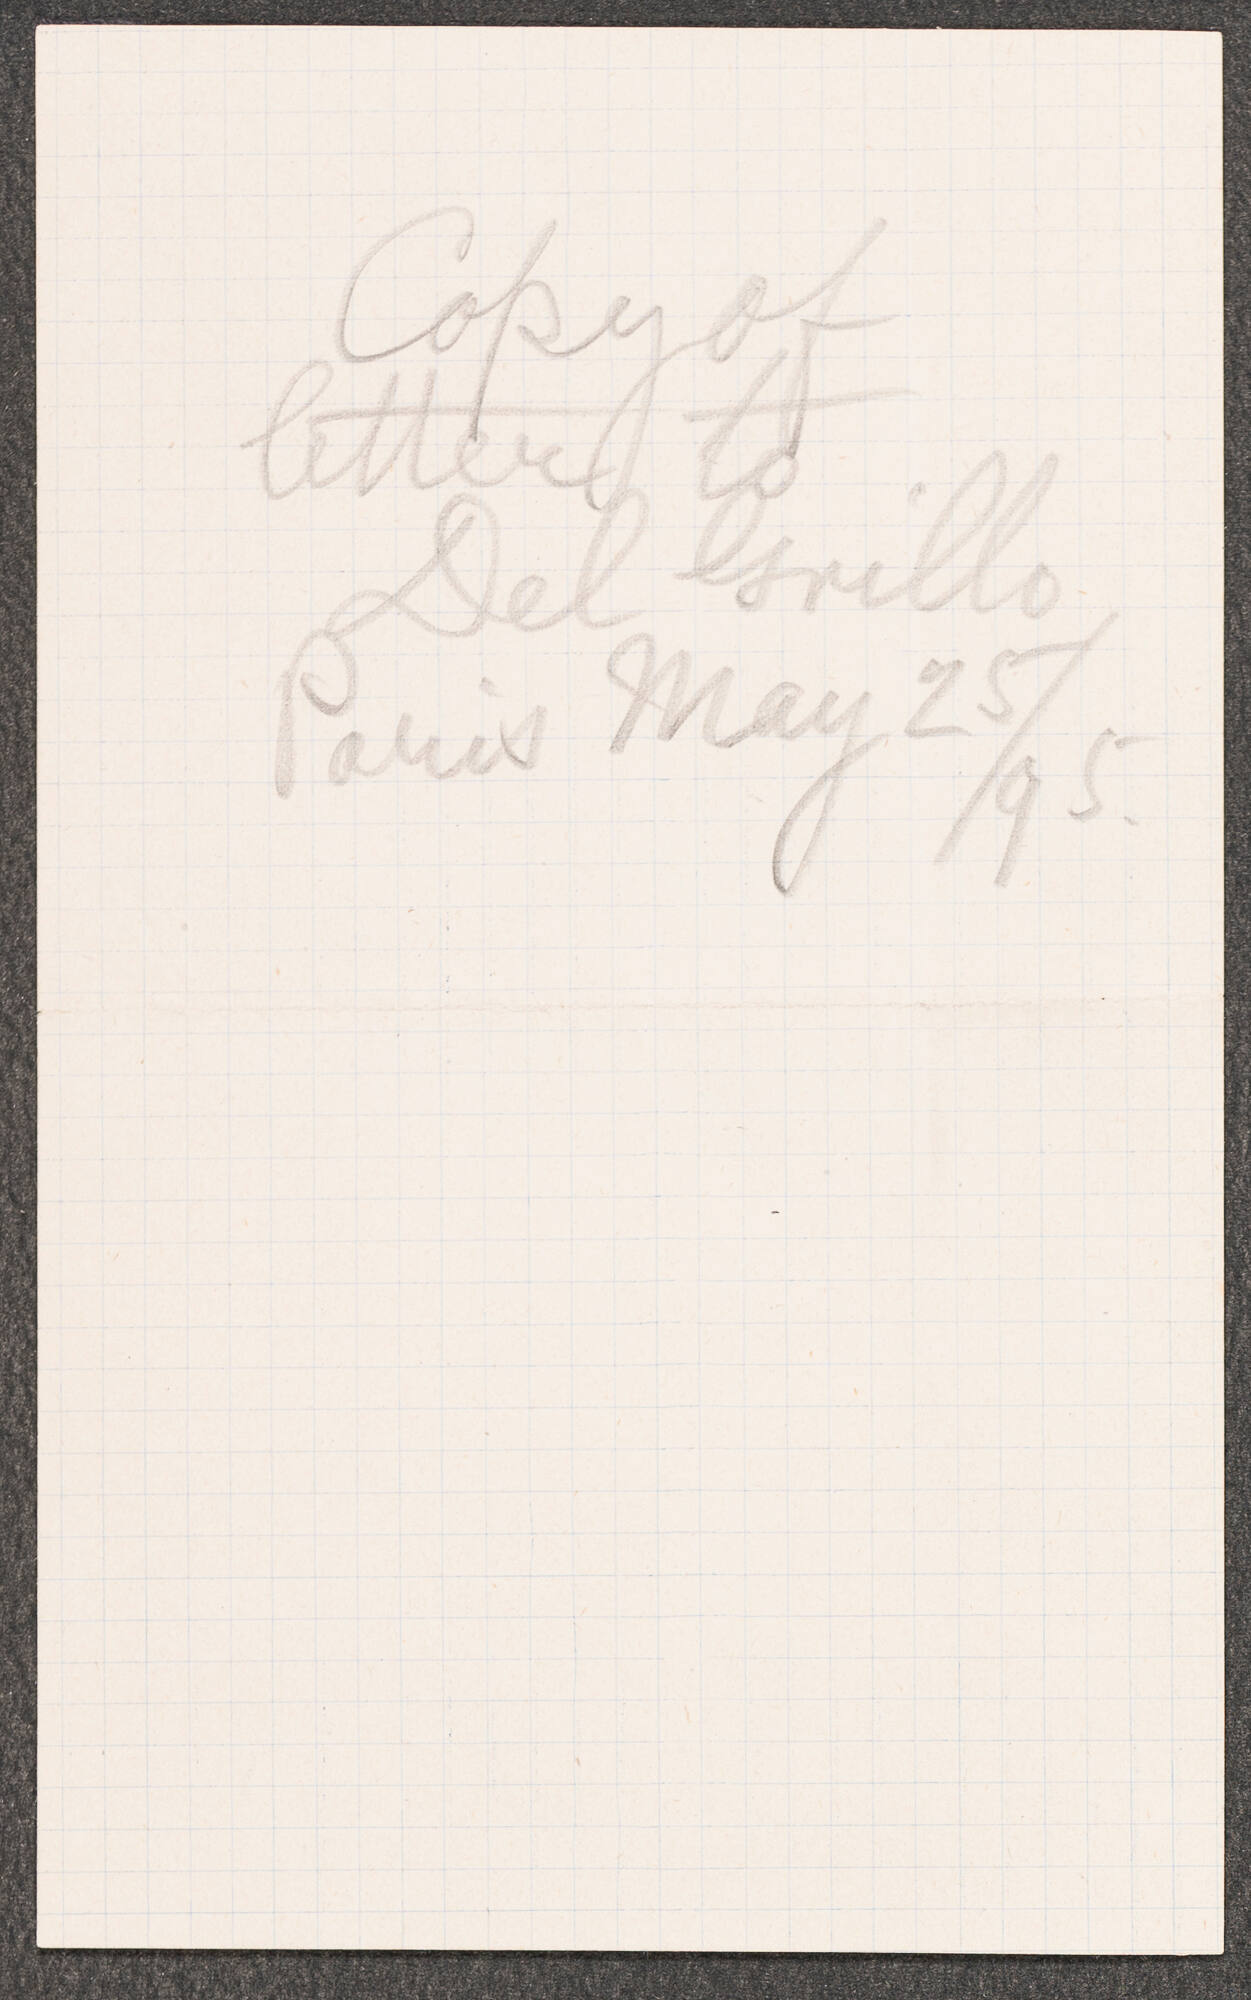 Copy of
letter to
Del Grillo
Paris May 25/
/95.